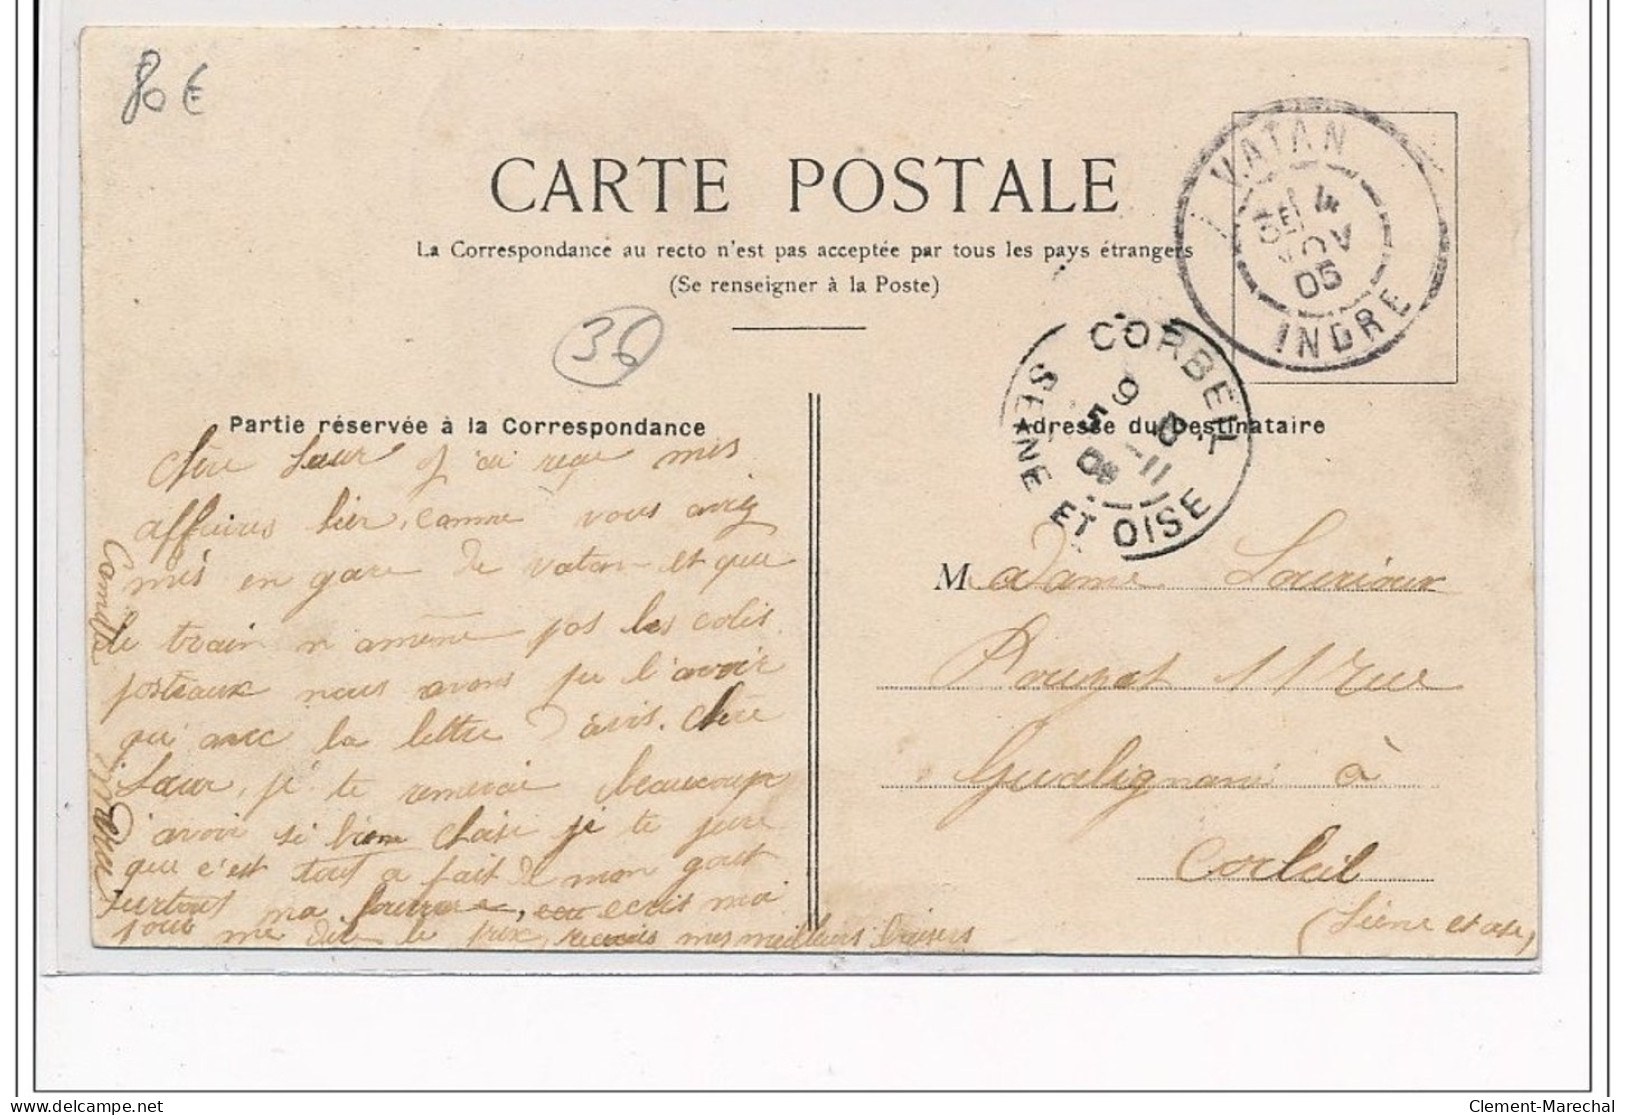 80 €
CARTE POSTALE
La Correspondance au recto n'est pas acceptée par tous les pays étrangers
(Se renseigner à la Poste)
36
VATAN
4
NOV
05
INDRE
CORBEIL
SEINE ET OISE
Partie réservée à la Correspondance
Adresse du Destinataire
chère Sœur j'ai reçu mes
affaires hier, comme vous aviez
mis en gare de vatan et que
le train n'amène pas les colis
posteaux nous avons pu l'avoir
qu'avec la lettre d'avis. chère
Sœur, je te remercie beaucoup
d'avoir si bien choisi je te jure
que c'est tout a fait de mon gout
surtout ma fourrure, ecris moi
pour me dire le prix, recevis mes meilleurs baisers
Camille
Madame Lourioux
Pouzat 11 rue
Gualignani à
Corbeil
(Seine et oise)
Clement-Marechal